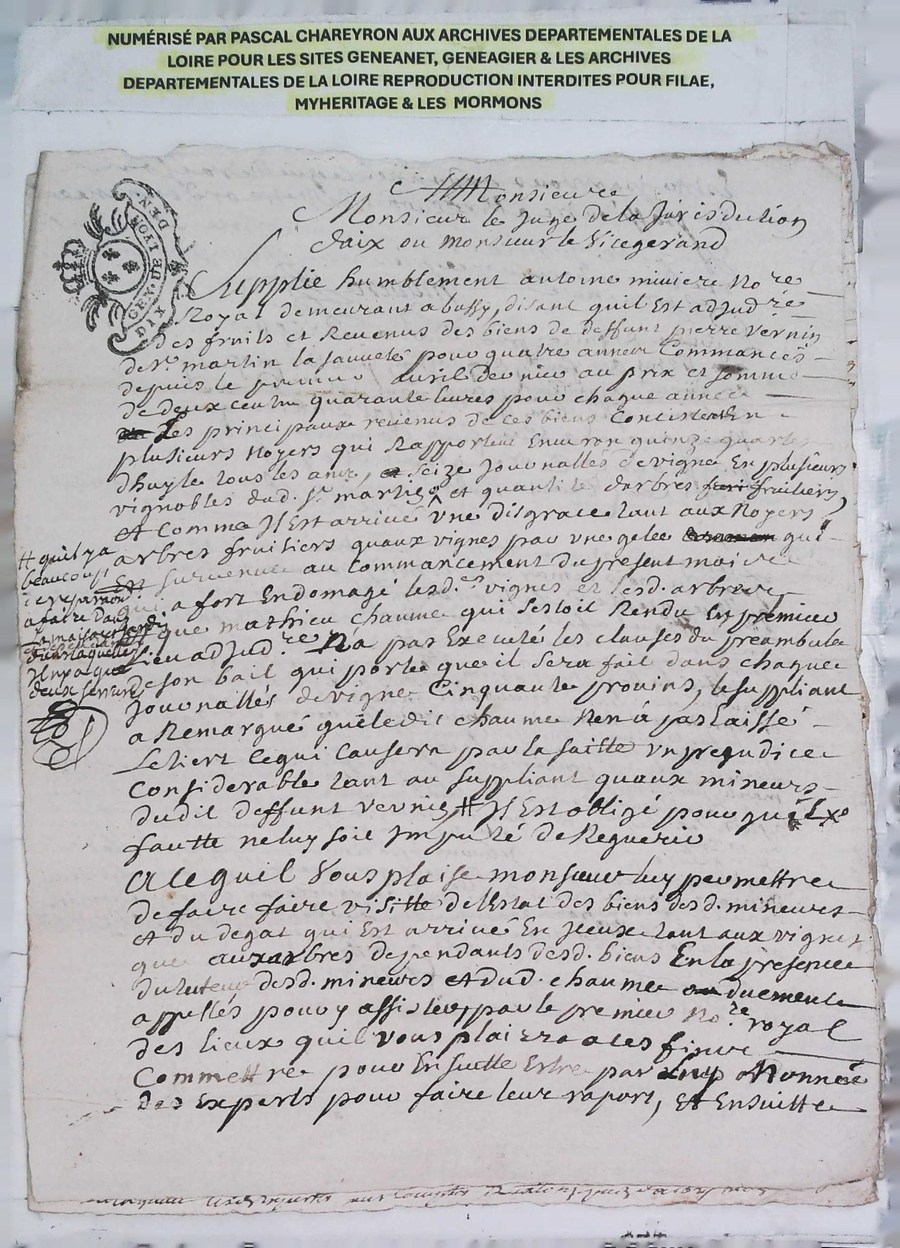 NUMÉRISÉ PAR PASCAL CHAREYRON AUX ARCHIVES DEPARTEMENTALES DE LA
LOIRE POUR LES SITES GENEANET, GENEAGIER & LES ARCHIVES
DEPARTEMENTALES DE LA LOIRE REPRODUCTION INTERDITES POUR FILAE,
MYHERITAGE & LES MORMONS
GEN. DE LYON
DIX DEN.
Monsieur
Monsieur le Juge de la Jurisdiction
daix ou monsieur le Vicegerand
Supplie humblement antoine miviere No.re
Royal demeurant a bussy, disant quil Est adjud.re
des fruits et Revenus des biens de deffunt pierre Vernin
de s.t martin la sauveté pour quatre années Commancés
depuis le premier avril dernier au prix et somme
de deux cents quarante livres pour chaque année
Les principaux revenus de ces biens Concistent En
plusieurs Noyers qui Rapportent Environ quinze quartes
dhuyle tous les ans, seize Journallés de vigne En plusieurs
vignobles dud. s.t martin et quantité darbres fruitiers
Et Comme Il Est arrivé Une disgrace tant aux Noyers
arbres fruitiers quaux vignes par une gelée qui
Est survenue au Commancement du present moi
qui a fort Endomagé lesd. vignes et lesd. arbres
que mathieu Chaume qui sestoit Rendu le premier
adjud.re Na pas Executé les clauses du preambule
de son bail qui porte que il sera fait dans chaque
Journallés de vigne Cinquante provins, le suppliant
a Remarqué que ledit chaume Nen à pas laissé
Le tiert Ce qui Causera par la suitte un prejudice
Considerable tant au suppliant quaux mineurs
dudit deffunt vernin # Il Est obligé pour que
fautte ne luy soit Imputé de Requerir
# quil y a
beaucoup
de reparaons
a faire dans
A Ce quil Vous plaise monsieur luy permettre
de faire faire visitte de lEstat des biens desd. mineurs
Et du degat qui Est arrivé En Iceux tant aux vignes
que aux arbres dependants desd. biens En la presence
du tuteur desd. mineurs Et dud. chaume duement
appellés pour y assister par le premier No.re royal
des lieux quil vous plairra a ces fins
Commettre pour Ensuitte Estre par luy Nonmé
Des Experts pour faire leur raport, Et Ensuitte